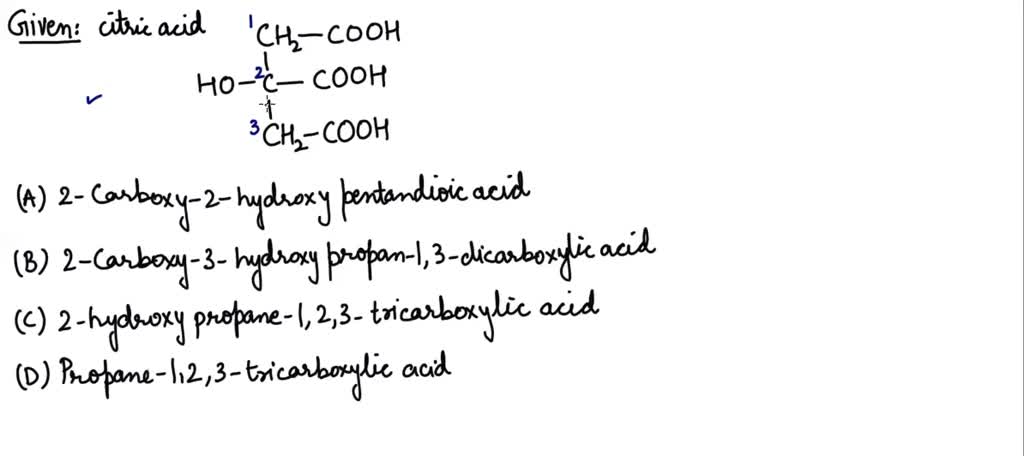 Given: citric acid
¹CH₂–COOH
HO–²C–COOH
³CH₂–COOH
(A) 2-Carboxy-2-hydroxy pentandioic acid
(B) 2-Carboxy-3-hydroxy propan-1,3-dicarboxylic acid
(C) 2-hydroxy propane-1,2,3-tricarboxylic acid
(D) Propane-1,2,3-tricarboxylic acid